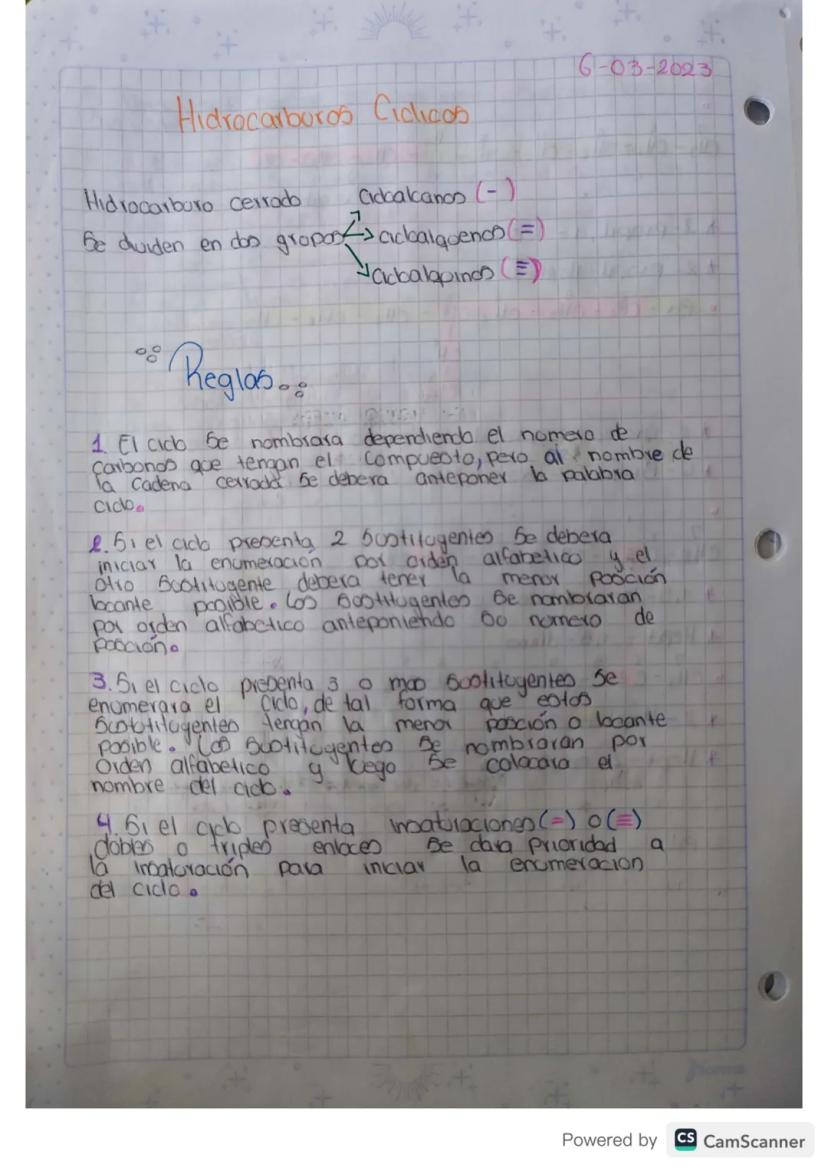 6-03-2023
Hidrocarburos Ciclicos
Hidrocarburo cerrado
Cicloalcanos (-)
Se dividen en dos grupos
cicloalquenos (=)
Cicloalquinos (≡)
Reglas
1. El ciclo se nombrara dependiendo el numero de
carbonos que tengan el compuesto, pero al nombre de
la cadena cerrada se debera anteponer la palabra
ciclo.
2. Si el ciclo presenta 2 sustituyentes se debera
iniciar la enumeración por orden alfabetico y el
otro sustituyente debera tener la menor posición
locante posible. Los sustituyentes se nombraran
por orden alfabetico anteponiendo su numero de
posición.
3. Si el ciclo presenta 3 o mas sustituyentes se
enumerara el ciclo, de tal forma que estos
sustituyentes tengan la menor posción o locante
posible. Los sustituyentes se nombraran por
orden alfabetico y luego se colocara el
nombre del ciclo.
4. Si el ciclo presenta insaturaciones (=) o (≡)
dobles o triples enlaces se dara prioridad a
la insaturación para iniciar la enumeracion
del ciclo.
Powered by CS CamScanner